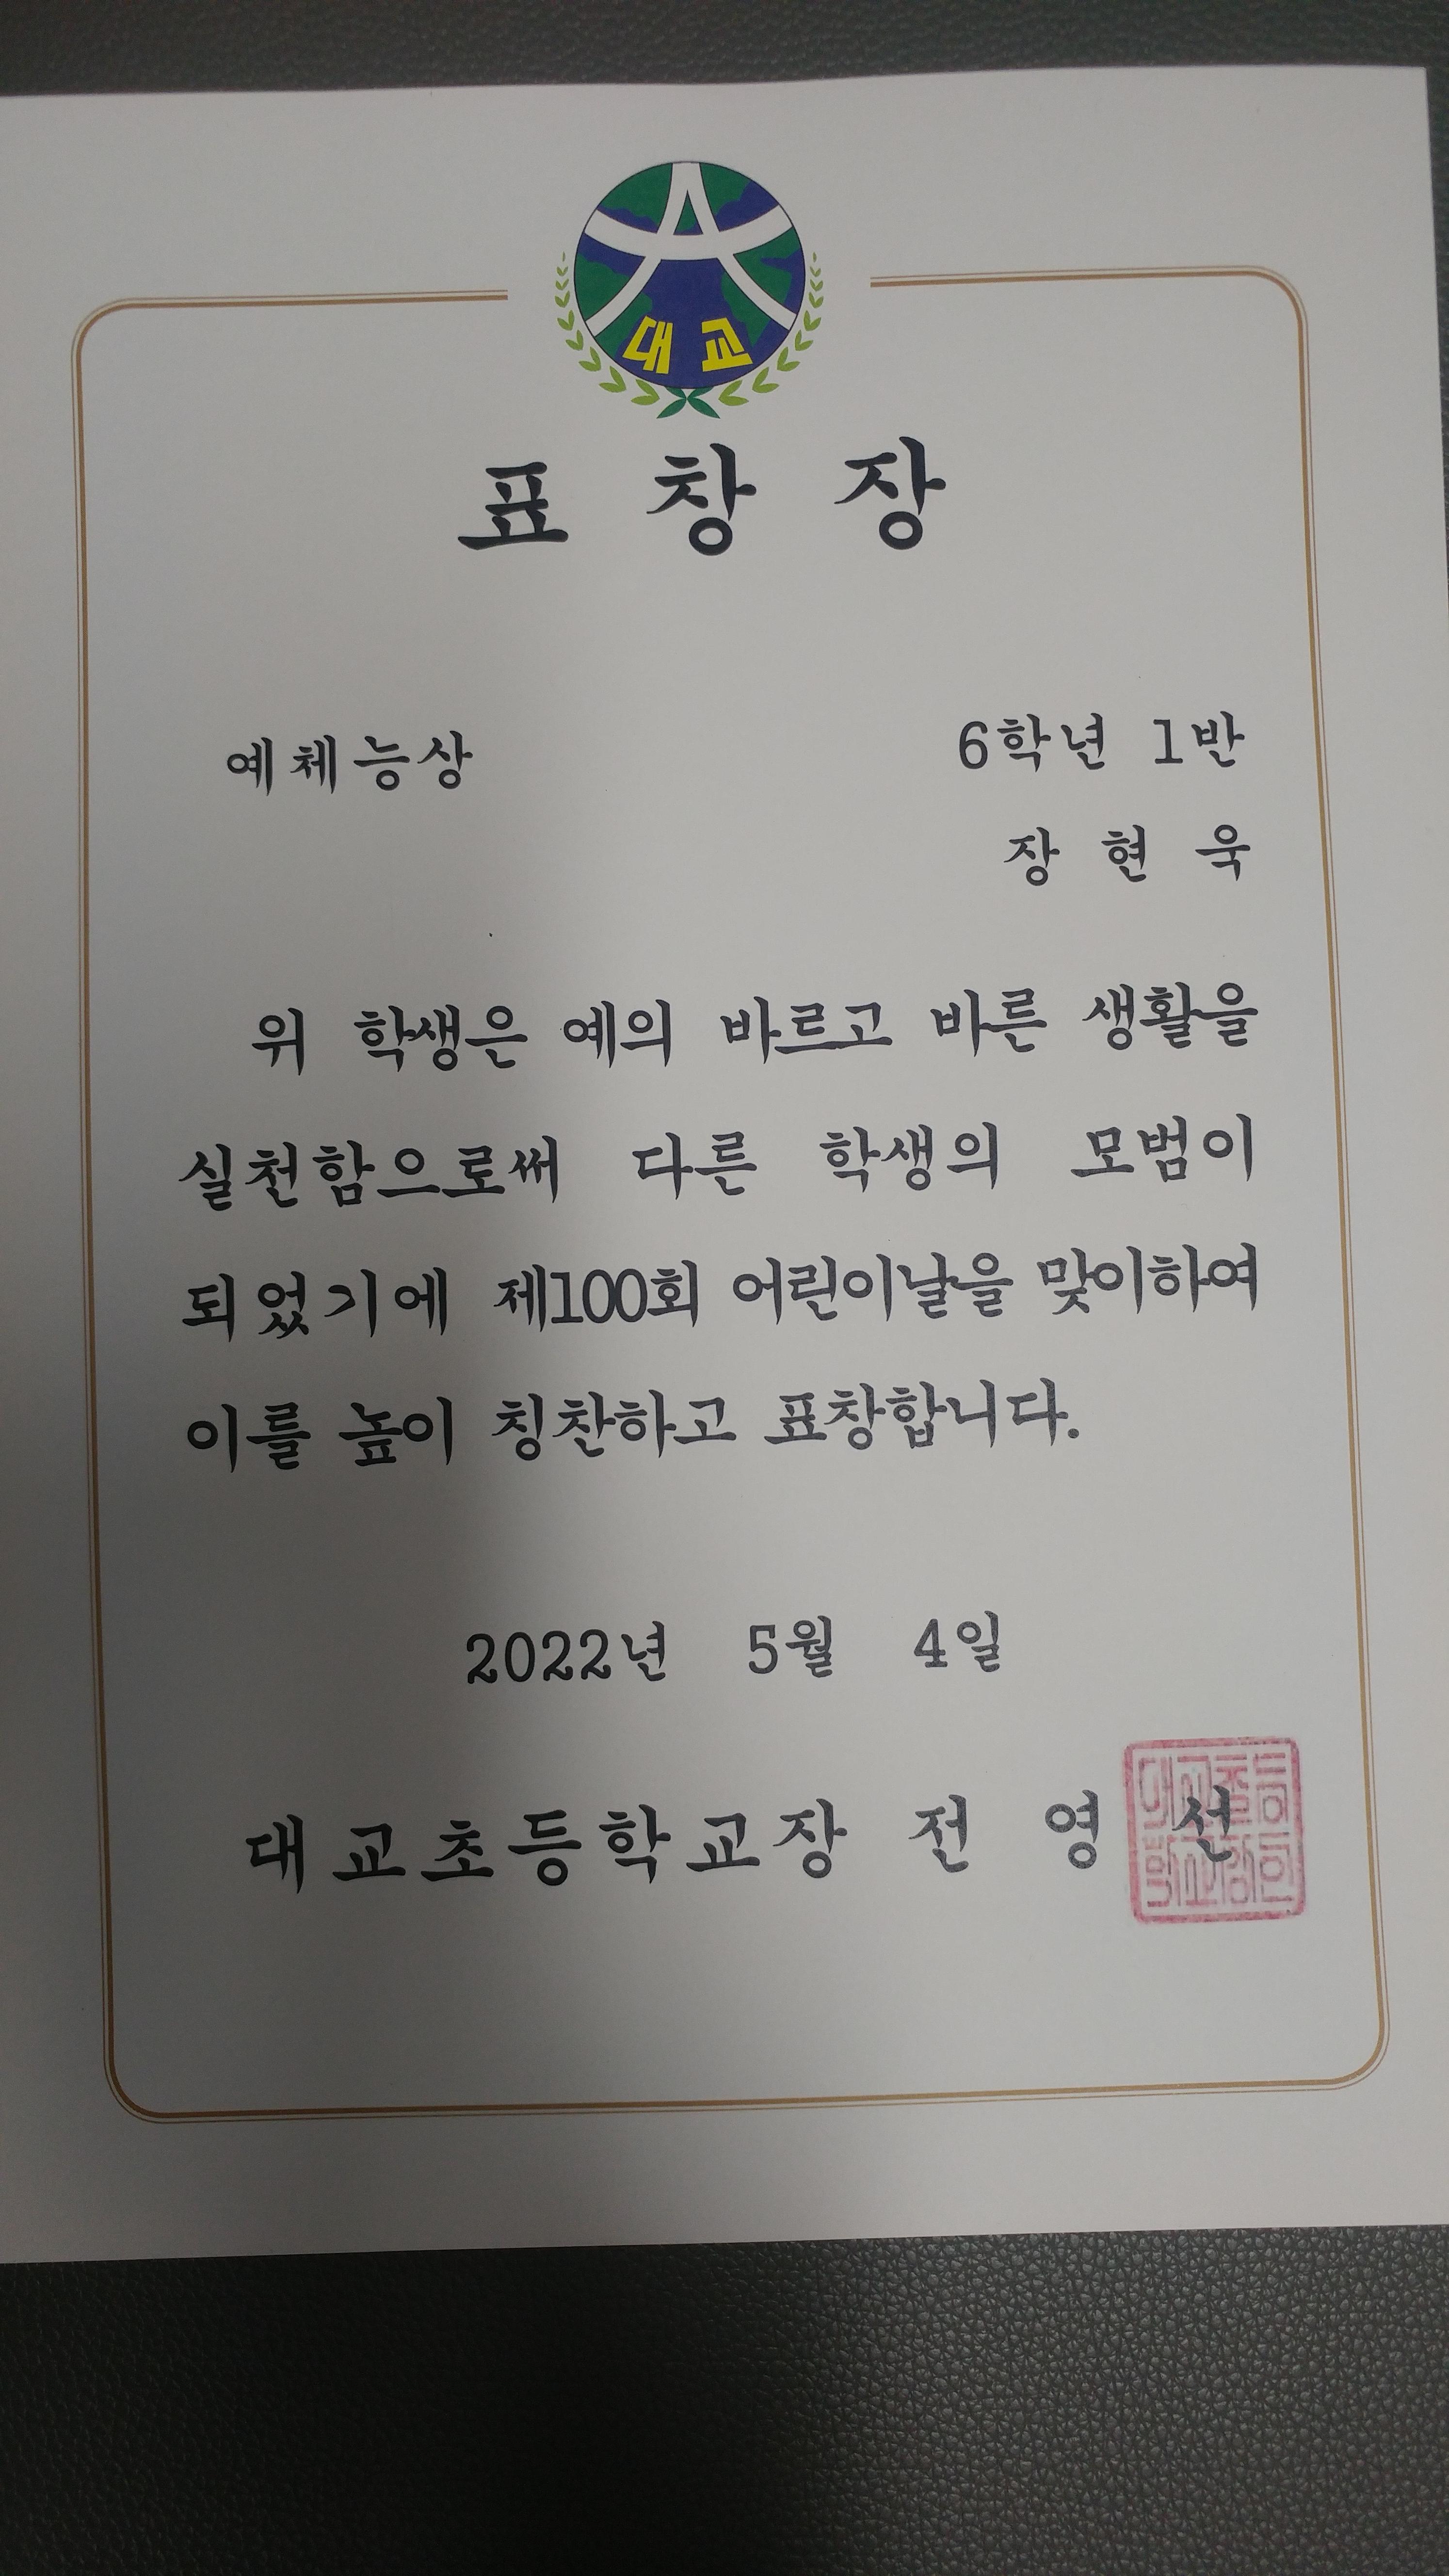 대교
표 창 장
예체능상
6학년 1반
장 현 욱
위 학생은 예의 바르고 바른 생활을
실천함으로써 다른 학생의 모범이
되었기에 제100회 어린이날을 맞이하여
이를 높이 칭찬하고 표창합니다.
2022년 5월 4일
대교초등학교장 전 영 선